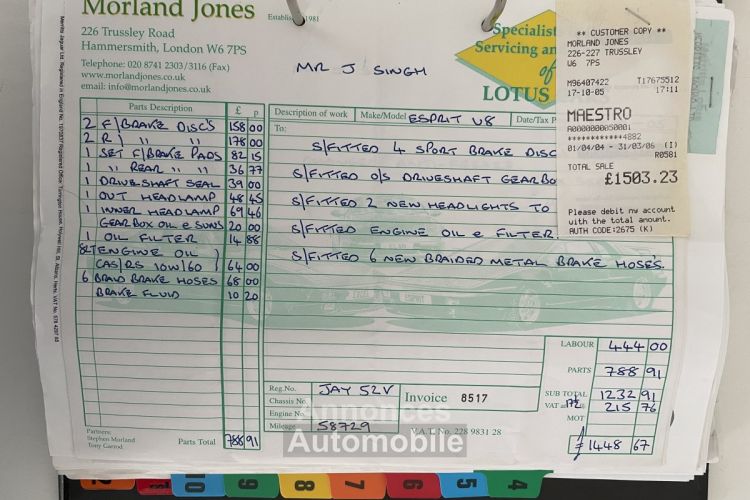 Morland Jones
Established 1981
226 Trussley Road
Hammersmith, London W6 7PS
Telephone: 020 8741 2303/3116 (Fax)
www.morlandjones.co.uk
email: info@morlandjones.co.uk
MR J SINGH
Specialist
Servicing an
of
LOTUS
** CUSTOMER COPY **
MORLAND JONES
226-227 TRUSSLEY
W6 7PS
M96407422 T17675512
17-10-05 17:11
MAESTRO
A0000000050001
************4882
01/04/04 - 31/03/06 (I)
R0501
TOTAL SALE
£1503.23
Please debit my account
with the total amount.
AUTH CODE:2675 (K)
Parts Description £ p
2 F/BRAKE DISC'S 158 00
2 R ) " " 178 00
1 SET F/BRAKE PADS 82 15
1 " REAR " " 36 77
1 DRIVESHAFT SEAL 39 00
1 OUT HEADLAMP 48 45
1 INNER HEADLAMP 69 46
GEARBOX OIL & SUNS 20 00
1 OIL FILTER 14 88
8LT ENGINE OIL )
CAS/RS 10W/60 ) 64 00
6 BRAID BRAKE HOSES 68 00
BRAKE FLUID 10 20
Partners:
Stephen Morland
Tony Garrod
Parts Total 788 91
Description of work Make/Model ESPRIT V8 Date/Tax P
To:
S/FITTED 4 SPORT BRAKE DISC
S/FITTED O/S DRIVESHAFT GEARBO
S/FITTED 2 NEW HEADLIGHTS TO
S/FITTED ENGINE OIL & FILTER.
S/FITTED 6 NEW BRAIDED METAL BRAKE HOSES.
Reg.No. JAY 52V
Chassis No.
Engine No.
Mileage 58729
Invoice 8517
V.A.T. No. 228 9831 28
LABOUR 444 00
PARTS 788 91
SUB TOTAL 1232 91
VAT 17½ 215 76
MOT
£ 1448 67
Annonces
Automobile
10 9 8 7 6 5 4